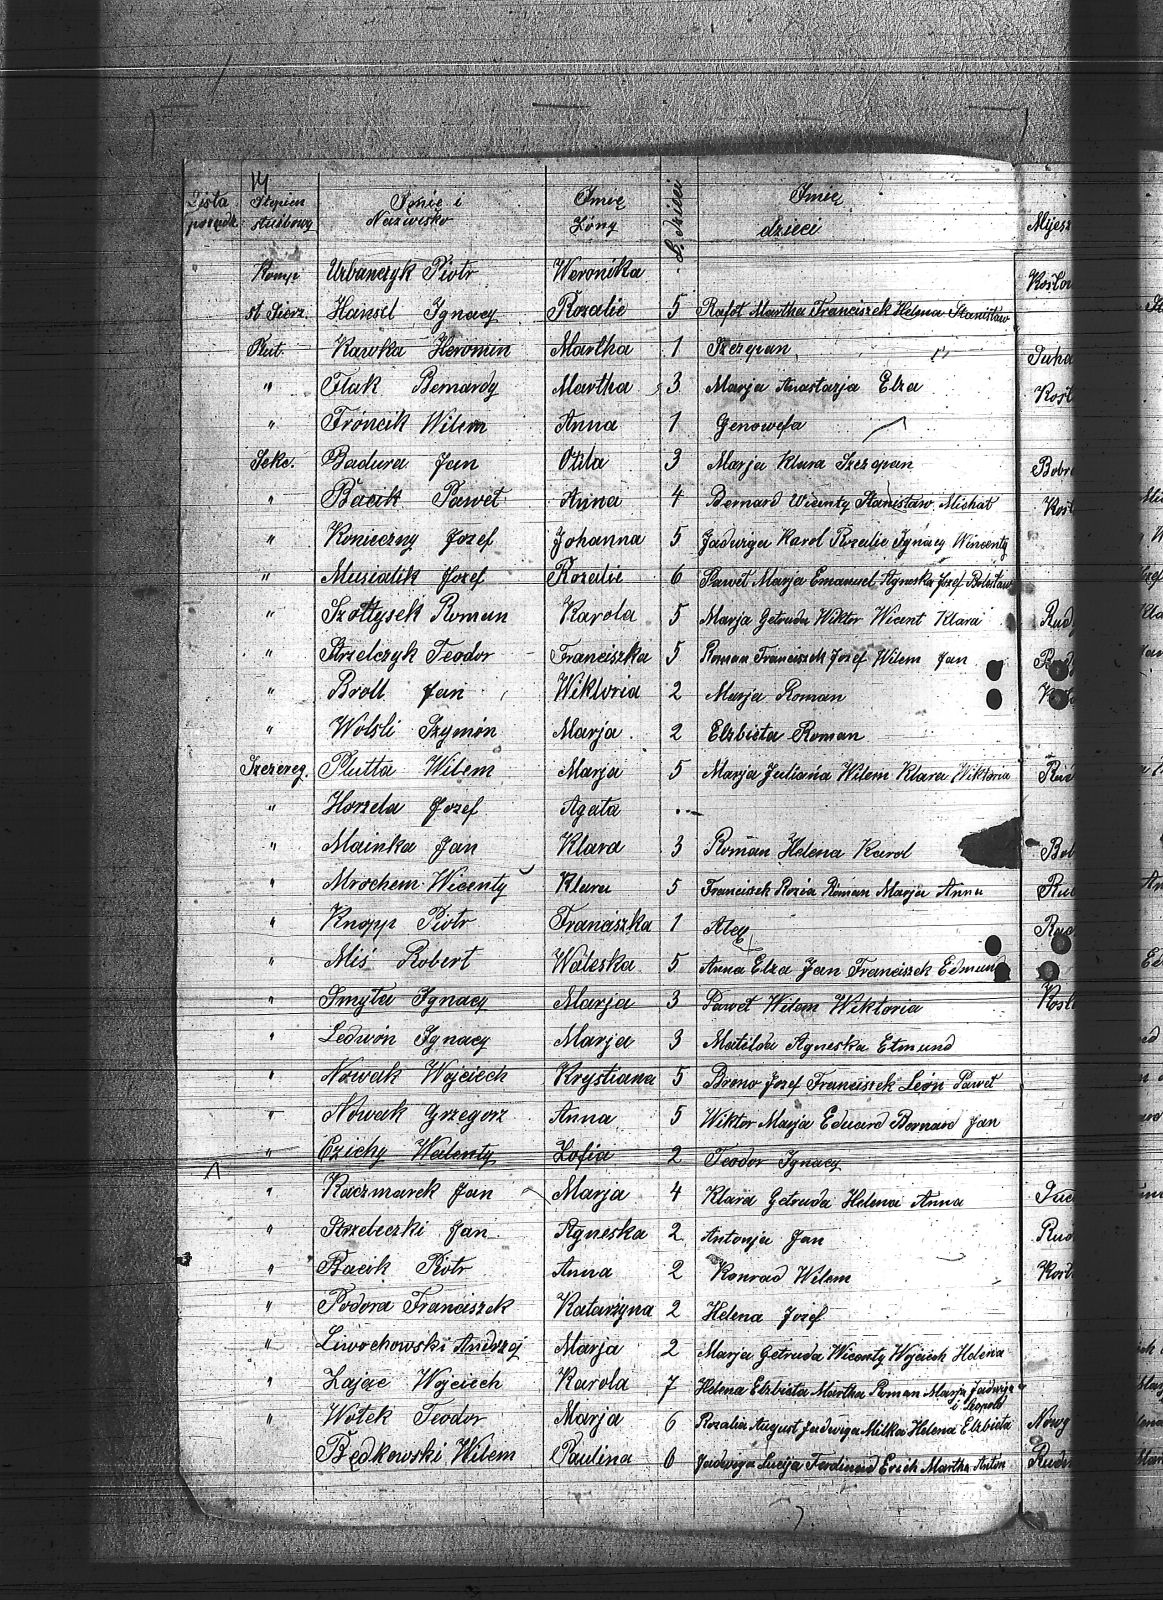 14
Lista Stopien Imię i Imię L. dzieci Imię
porządk. służbowy Nazwisko Żóny dzieci Miejsz
Komp Urbanczyk Piotr Weronika Kozłow
st Sierz. Hansel Ignacy Rozalie 5 Rafał Martha Franciszek Helena Stanisław
Plut. Kawka Heromin Martha 1 Szczepan
" Flak Bernardy Martha 3 Marja Anastazja Elza
" Fróncik Wilem Anna 1 Genowefa
Sekc. Badura Jan Otila 3 Marja Klara Szczepan Bobr
" Bacik Paweł Anna 4 Bernard Wicenty Stanisław Michał
" Konieczny Jozef Johanna 5 Jadwiga Karol Rozalie Ignacy Wincenty
" Musialik Jozef Rozalie 6 Paweł Marja Emanuel Agneska Jozef Bolesław
" Szołtysek Roman Karola 5 Marja Getruda Wiktor Wicent Klara Rud
" Strzelczyk Teodor Franciszka 5 Roman Franciszek Jozef Wilem Jan
" Broll Jan Wiktoria 2 Marja Roman
" Wolsli Szymón Marja 2 Elzbieta Roman
Szezereg. Plutta Wilem Marja 5 Marja Juliana Wilem Klara Wiktoria
" Horzela Jozef Agata
" Mainka Jan Klara 3 Roman Helena Karol Bob
" Mrochem Wicenty Klara 5 Franciszek Rozia Roman Marja Anna
" Knopp Piotr Franciszka 1 Alex
" Miś Robert Waleska 5 Anna Elza Jan Franciszek Edmund
" Smyta Ignacy Marja 3 Paweł Wilem Wiktoria
" Ledwón Ignacy Marja 3 Matilda Agneska Etmund
" Nowak Wojciech Krystiana 5 Bruno Jozef Franciszek León Paweł
" Nowak Grzegorz Anna 5 Wiktor Marja Eduard Bernard Jan
" Czichy Walenty Zofia 2 Teodor Ignacy
" Kaczmarek Jan Marja 4 Klara Getruda Helena Anna
" Strzeleczki Jan Agneska 2 Antonja Jan Rud
" Bacik Piotr Anna 2 Konrad Wilem
" Podora Franciszek Katarzyna 2 Helena Jozef
" Liwochowski Andrzej Marja 2 Marja Getruda Wicenty Wojciech Helena
" Zając Wojciech Karola 7 Helena Elzbieta Martha Roman Marja Jadwiga
i Leopold
" Wołek Teodor Marja 6 Rozalia August Jadwiga Milka Helena Elzbieta Nowy
" Będkowski Wilem Paulina 6 Jadwiga Lucja Ferdinad Erich Martha Anton